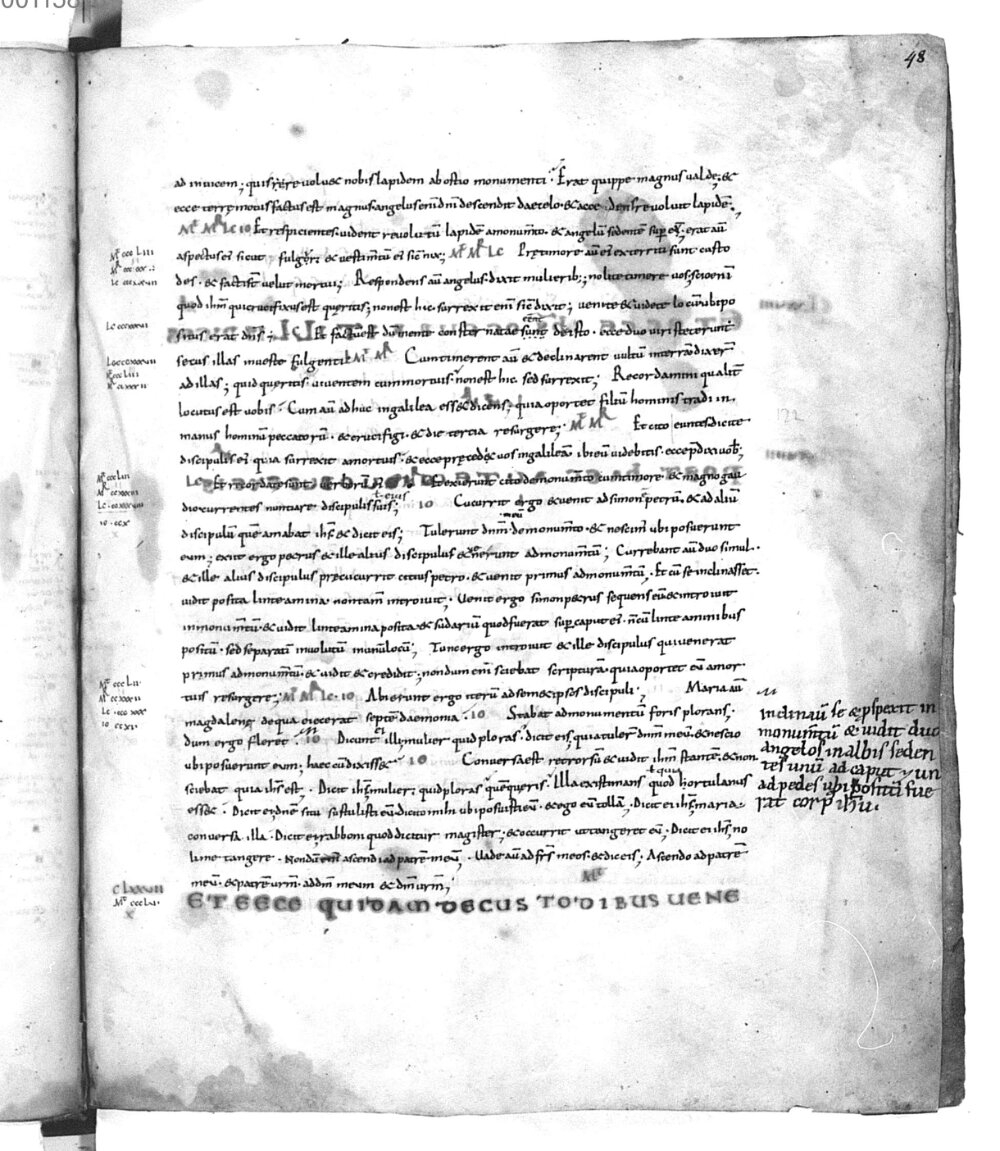 48
ad inuicem; quis reuoluet nobis lapidem ab ostio monumenti. Erat quippe magnus ualde; &
ecce terrę motus factus est magnus. angelus enī dnī descendit de caelo. & accedens reuoluit lapidē.
Mͭ Mͬ Lc IO Et respicientes. uident reuolutū lapidē a monumto. & angelū sedentē sup eū; erat aū
aspectus ei sicut fulgur. & uestimtū ei sic nix; Mͭ Mͬ Lc Prętimore aū ei exterriti sunt custo
des. & facti st uelut mortui; Respondens aū angelus. dixit mulierib; nolite timere uos; scio enī
quod ihm qui crucifixus est queritis; non est hic. surrexit enī sic dixit; uenite & uidete locum ubi po
situs erat dns; Et factū est dum mente consternatae sunt de isto. ecce duo uiri steterunt
secus illas in ueste fulgenti Mͭ Mͬ Cum timerent aū & declinarent uultum in terrā dixer
ad illas; quid queritis uiuentem cum mortuis. non est hic sed surrexit; Recordamini qualit
locutus est uobis. Cum aū adhuc in galilea esset dicens; quia oportet filiū hominis tradi in
manus hominū peccatorū. & crucifigi. & die tercia resurgere; Mͭ Mͬ Et cito euntes dicite
discipulis ei quia surrexit a mortuis. & ecce pręcedet uos in galileam. ibi eū uidebitis. ecce pdixi uob;
Lc Et recordatae sunt uerborū Et exierunt cito de monumto cum timore & magno gau
dio currentes nontiare discipulis suis; ł eius IO Cucurrit ergo & uenit ad simon petrū. & ad aliū
discipulū quē amabat ihs & dicit eis; Tulerunt dnm de monumto. & nescim ubi posuerunt
eum; exiit ergo petrus & ille alius discipulus & uenerunt ad monumtū; Currebant aū duo simul.
& ille alius discipulus precucurrit citius petro. & uenit primus ad monumtū. Et cū se inclinasset.
uidit posita linteamina. non tam introiuit; Uenit ergo simon petrus sequens eū & introiuit
in monumtū & uidit linteamina posita. & sudariū quod fuerat sup caput ei. n cū linteaminibus
positū. sed separatī inuolutū in unū locū; Tunc ergo introiuit & ille discipulus qui uenerat
primus ad monumtū. & uidit & credidit; nondum enī sciebat scripturā. quia oportet eū a mor
tuis resurgere; Mͭ Mͬ Lc IO Abierunt ergo iterū ad semet ipsos discipuli; Maria aū
magdalene de qua eiecerat septē daemonia. IO Stabat ad monumentū foris plorans;
dum ergo fleret. IO Dicunt ei illi mulier quid ploras. dicit eis; quia tuler dnm meū. & nescio
ubi posuerunt eum; haec cū dixisset. IO Conuersa est retrorsū & uidit ihm stantē. & non
sciebat quia ihs est; Dicit ihs. mulier; quid ploras quē queris; Illa existimans ł quia quod hortulanus
esset. Dicit ei dne si tu sustulisti eū dicito mihi ubi posuisti eū. & ego eū tollā; Dicit ei ihs; maria.
conuersa illa. Dicit ei; rabboni quod dicitur magister; & occurrit ut tangeret eū; Dicit ei ihs; no
li me tangere. Nondū enī ascendi ad patrē meū; Uade aū ad frs meos. & dic eis; Ascendo ad patrē
meū. & patrē urm. ad dm meum & dm urm;
ET ECCE QUIDAM DE CUSTODIBUS UENE
inclinauit se & pspexit in
monumtū & uidit duo
angelos in albis seden
tes unū ad caput & un
ad pedes ubi positū fue
rat corp ihu.